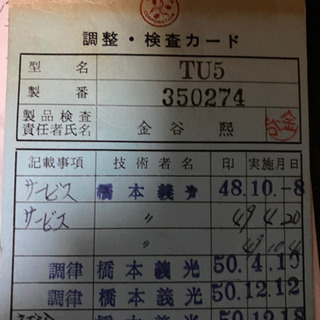 調整・検査カード
型名 TU5
製番 350274
製品検査
責任者氏名 金谷 熙
記載事項 技術者名 印 実施月日
サービス 橋本義光 48.10.-8
サービス 〃 49 4.20
〃 49 10.4
調律 橋本義光 50.4.10
調律 橋本義光 50.12.12
橋本義光 50.12.18